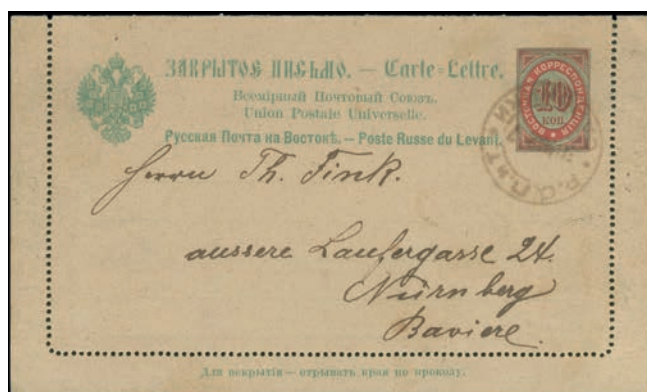 ЗАКРЫТОЕ ПИСЬМО. — Carte=Lettre.
Всемірный Почтовый Союзъ.
Union Postale Universelle.
Русская Почта на Востокѣ. — Poste Russe du Levant.
ВОСТОЧНАЯ КОРРЕСПОНДЕНЦІЯ
10
КОП
Р.О.П.и Т.
Herrn Th. Fink.
aussere Laufergasse 24.
Nürnberg
Baviere.
Для вскрытія — отрывать края по проколу.